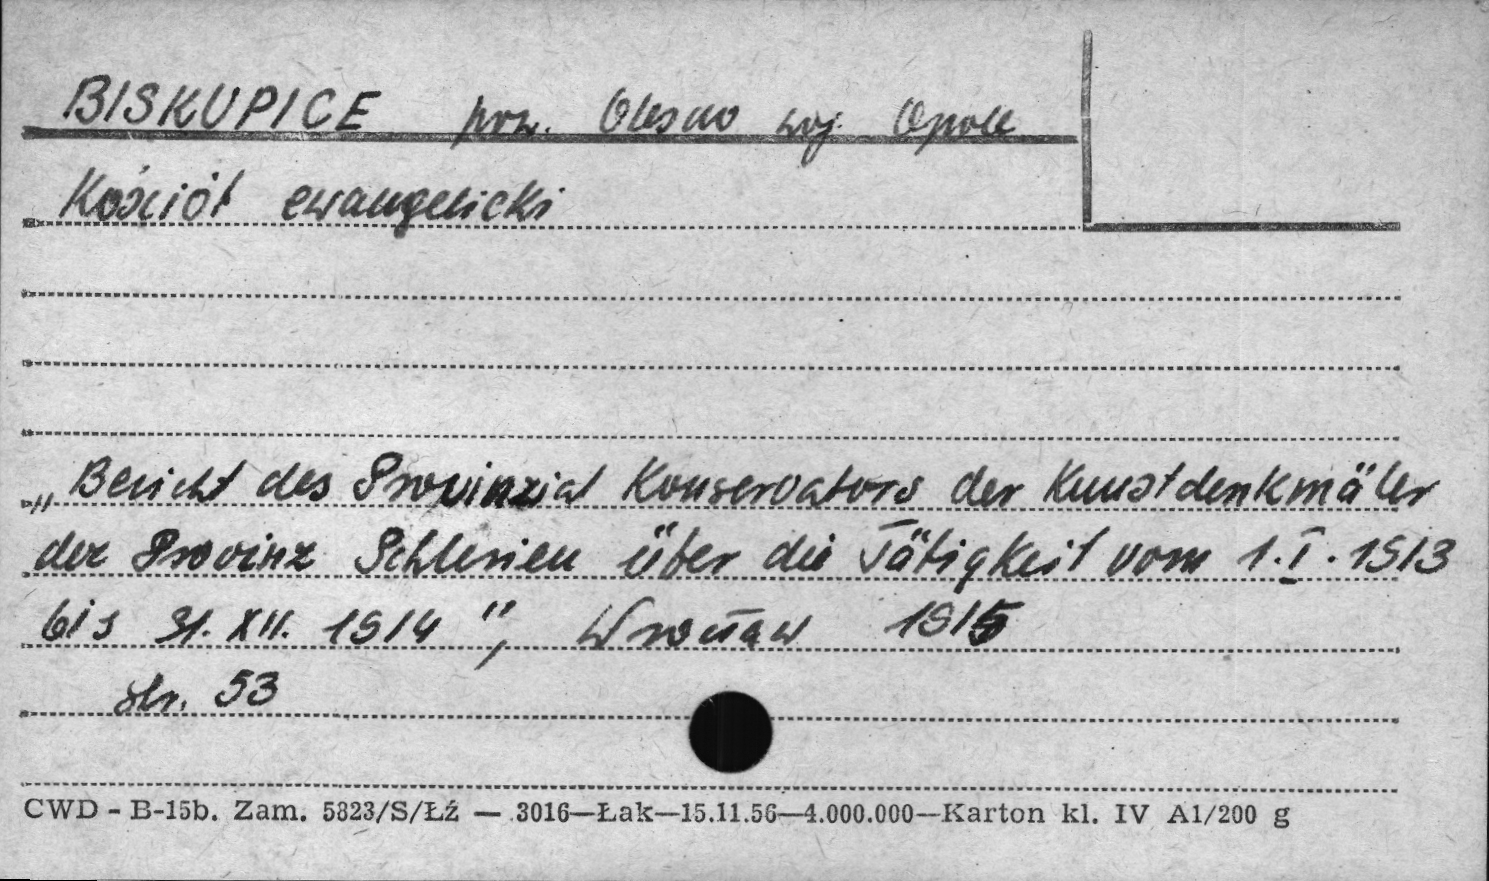 BISKUPICE pow. Olesno woj. Opole
Kościół ewangelicki
„Bericht des Provinzial Konservators der Kunstdenkmäler
der Provinz Schlesien über die Tätigkeit vom 1.I.1913
bis 31.XII.1914", Wrocław 1915
str. 53
CWD - B-15b. Zam. 5823/S/Łź — 3016—Łak—15.11.56—4.000.000—Karton kl. IV A1/200 g